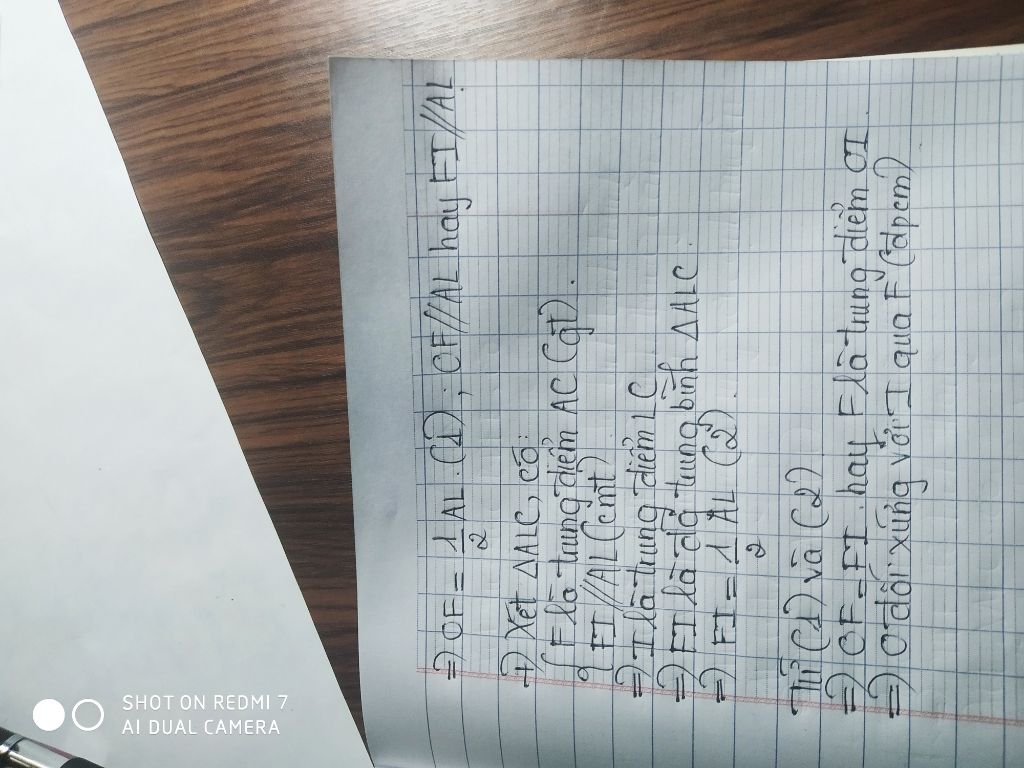 => OF = 1/2 AL (1) ; OF//AL hay FI//AL.
+) Xét ΔALC, có:
{ F là trung điểm AC (gt).
FI//AL (cmt)
=> I là trung điểm LC
=> FI là đg trung bình ΔALC
=> FI = 1/2 AL (2).
Từ (1) và (2)
=> OF = FI. hay F là trung điểm OI.
=> O đối xứng với I qua F (đpcm)
SHOT ON REDMI 7
AI DUAL CAMERA